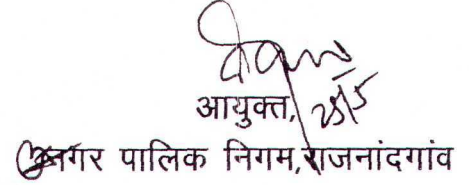 आयुक्त, 25/5
नगर पालिक निगम,राजनांदगांव